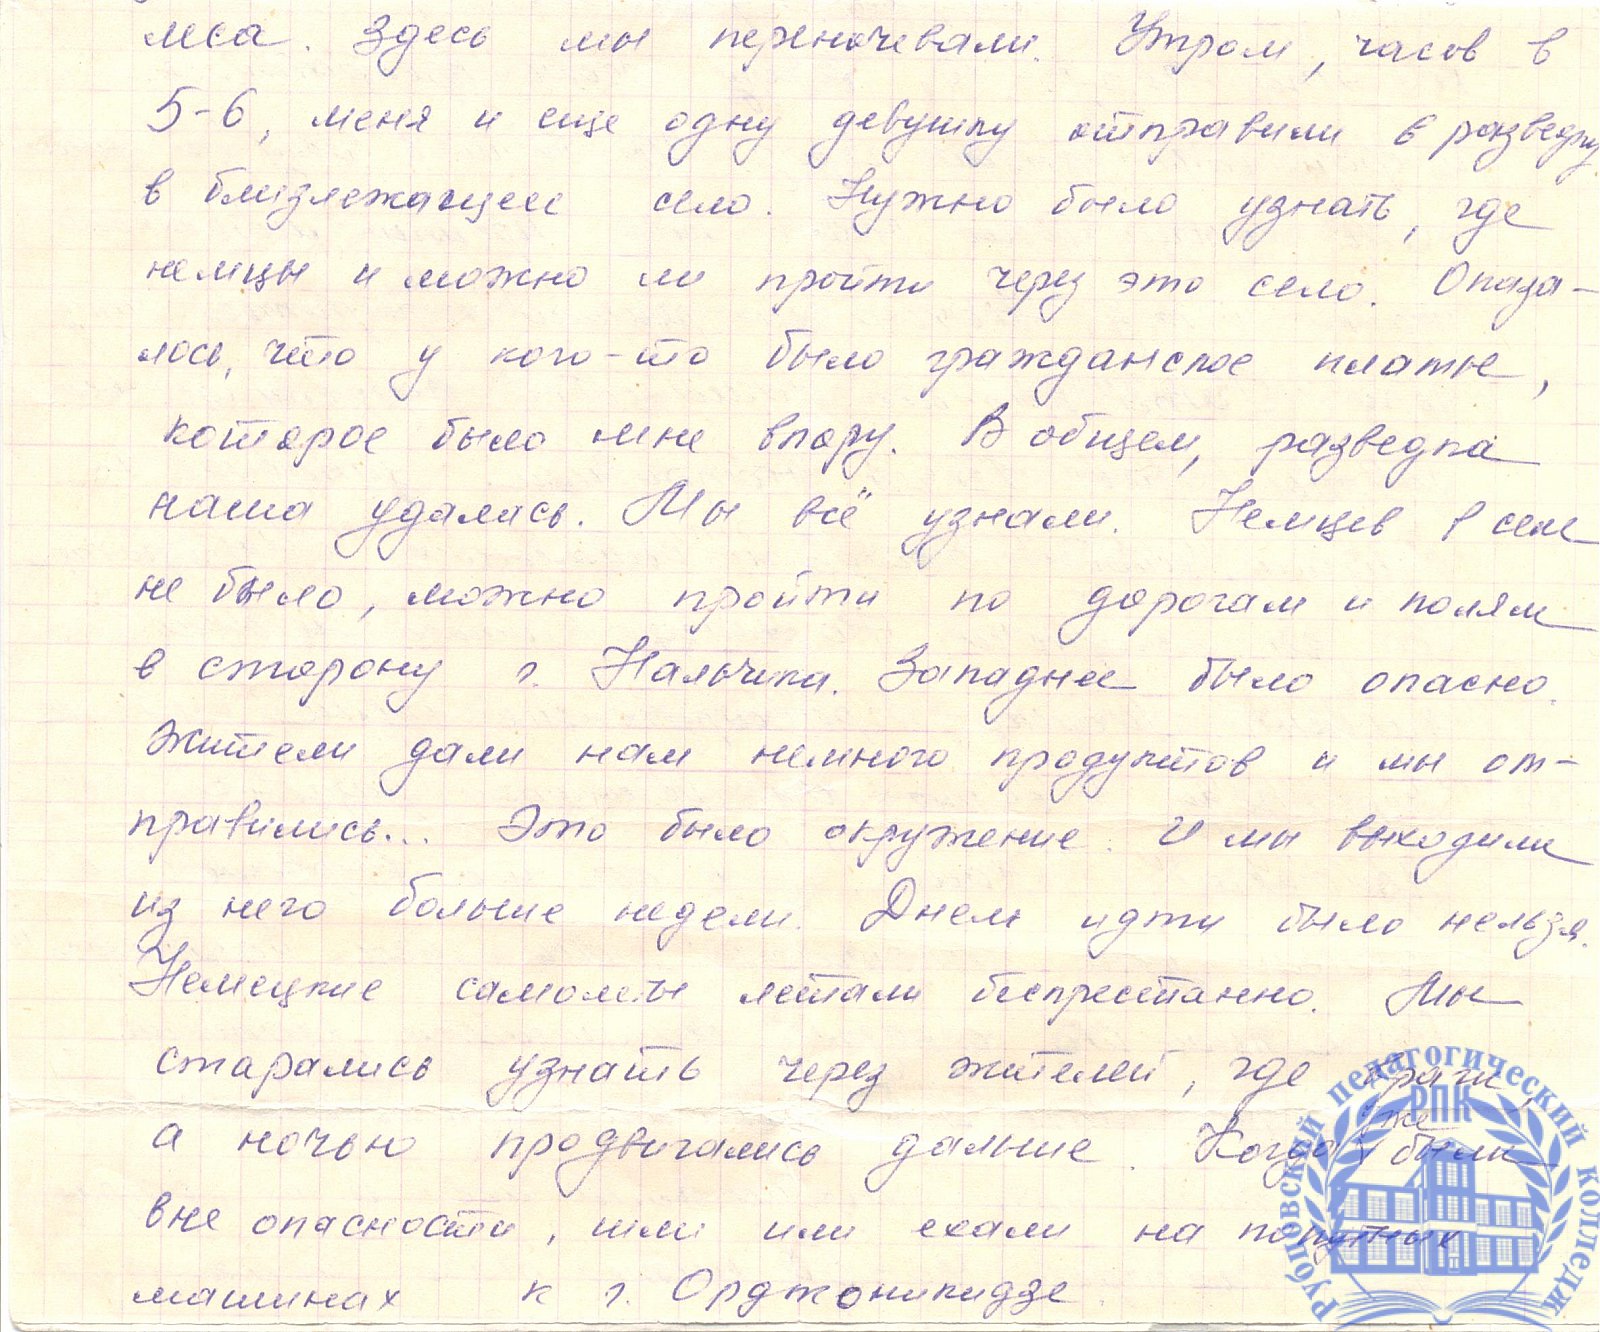 леса. Здесь мы переночевали. Утром, часов в
5-6, меня и еще одну девушку отправили в разведку
в близлежащее село. Нужно было узнать, где
немцы и можно ли пройти через это село. Оказа-
лось, что у кого-то было гражданское платье,
которое было мне впору. В общем, разведка
наша удалась. Мы всё узнали. Немцев в селе
не было, можно пройти по дорогам и полям
в сторону г. Нальчика. Западнее было опасно.
Жители дали нам немного продуктов и мы от-
правились... Это было окружение. И мы выходили
из него больше недели. Днем идти было нельзя.
Немецкие самолеты летали беспрестанно. Мы
старались узнать через жителей, где враги,
а ночью продвигались дальше. Когда уже были
вне опасности, шли или ехали на попутных
машинах к г. Орджоникидзе.
Рубцовский педагогический колледж
РПК